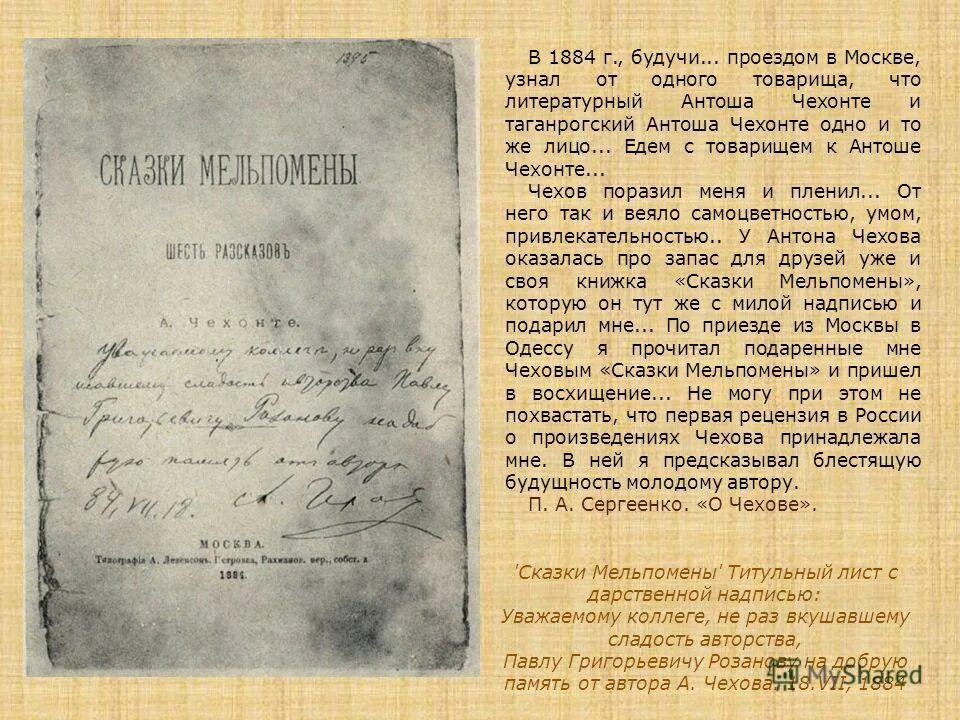 1395
СКАЗКИ МЕЛЬПОМЕНЫ
ШЕСТЬ РАЗСКАЗОВЪ
А. Чехонте.
Уважаемому коллеге, не раз вку
шавшему сладость авторства Павлу
Григорьевичу Розанову на доб
рую память от автора
84, VII, 18. А. Чехов
МОСКВА.
Типографія А. Левенсонъ, Петровка, Рахманов. пер., собст. д.
1884.
В 1884 г., будучи... проездом в Москве,
узнал от одного товарища, что
литературный Антоша Чехонте и
таганрогский Антоша Чехонте одно и то
же лицо... Едем с товарищем к Антоше
Чехонте...
Чехов поразил меня и пленил... От
него так и веяло самоцветностью, умом,
привлекательностью.. У Антона Чехова
оказалась про запас для друзей уже и
своя книжка «Сказки Мельпомены»,
которую он тут же с милой надписью и
подарил мне... По приезде из Москвы в
Одессу я прочитал подаренные мне
Чеховым «Сказки Мельпомены» и пришел
в восхищение... Не могу при этом не
похвастать, что первая рецензия в России
о произведениях Чехова принадлежала
мне. В ней я предсказывал блестящую
будущность молодому автору.
П. А. Сергеенко. «О Чехове».
'Сказки Мельпомены' Титульный лист с
дарственной надписью:
Уважаемому коллеге, не раз вкушавшему
сладость авторства,
Павлу Григорьевичу Розанову на добрую
память от автора А. Чехова. 18.VII, 1884
MyShared